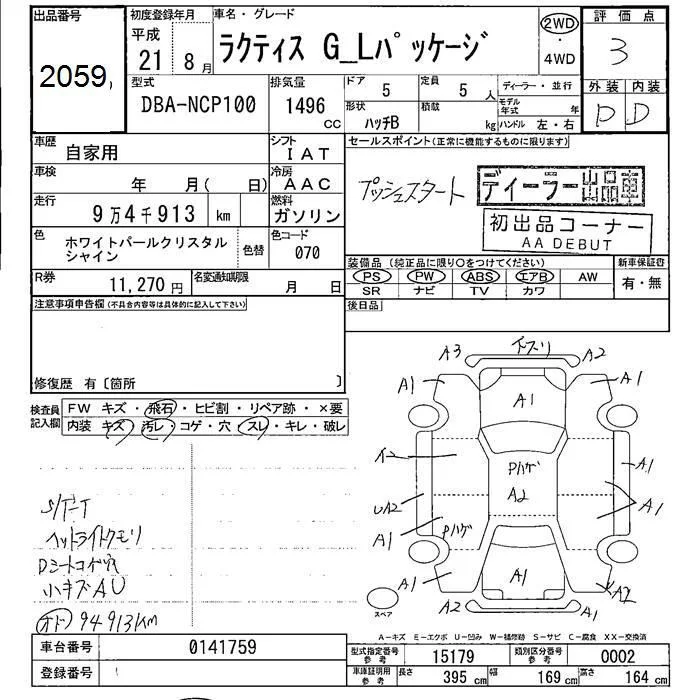 出品番号
2059
初度登録年月
平成
21年8月
車名・グレード
ラクティス G_Lパッケージ
2WD
・
4WD
評価点
3
外装 内装
D D
型式
DBA-NCP100
排気量
1496
cc
ドア
5
定員
5人
形状
ハッチB
積載
kg
ディーラー・並行
モデル年式 年
ハンドル 左・右
車歴
自家用
シフト
IAT
車検
年 月( 日)
冷房
AAC
走行
9万4千913 km
燃料
ガソリン
色
ホワイトパールクリスタル
シャイン
色替
色コード
070
R券
11,270円
名変通知期限
月 日
セールスポイント(正常に機能するものに限ります)
プッシュスタート
ディーラー出品車
初出品コーナー
AA DEBUT
装備品 (純正品に限り○をつけてください)
PS PW ABS エアB AW
SR ナビ TV カワ
新車保証書
有・無
後日品
注意事項申告欄(不具合内容等は具体的に記入して下さい)
修復歴 有〔箇所 〕
検査員
記入欄
FW キズ・飛石・ヒビ割・リペア跡・×要
内装 キズ・汚レ・コゲ・穴・スレ・キレ・破レ
S/T-T
ヘッドライトクモリ
Dシートコゲ穴
小キズAU
オド 94913KM
A3
キズリ
A2
A1
A1
A1
Pハゲ
A2
A1
UA2
A1
A1
Pハゲ
A1
A1
A2
A2
A1
スペア
A-キズ E-エクボ U-凹み W-補修跡 S-サビ C-腐食 XX-交換済
車台番号
0141759
登録番号
型式指定番号
参考
15179
類別区分番号
参考
0002
車庫証明用
参考
長さ
395 cm
幅
169 cm
高さ
164 cm